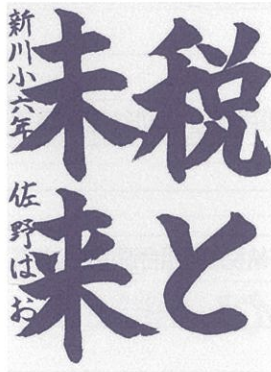 税と
未来
新川小六年 佐野はお